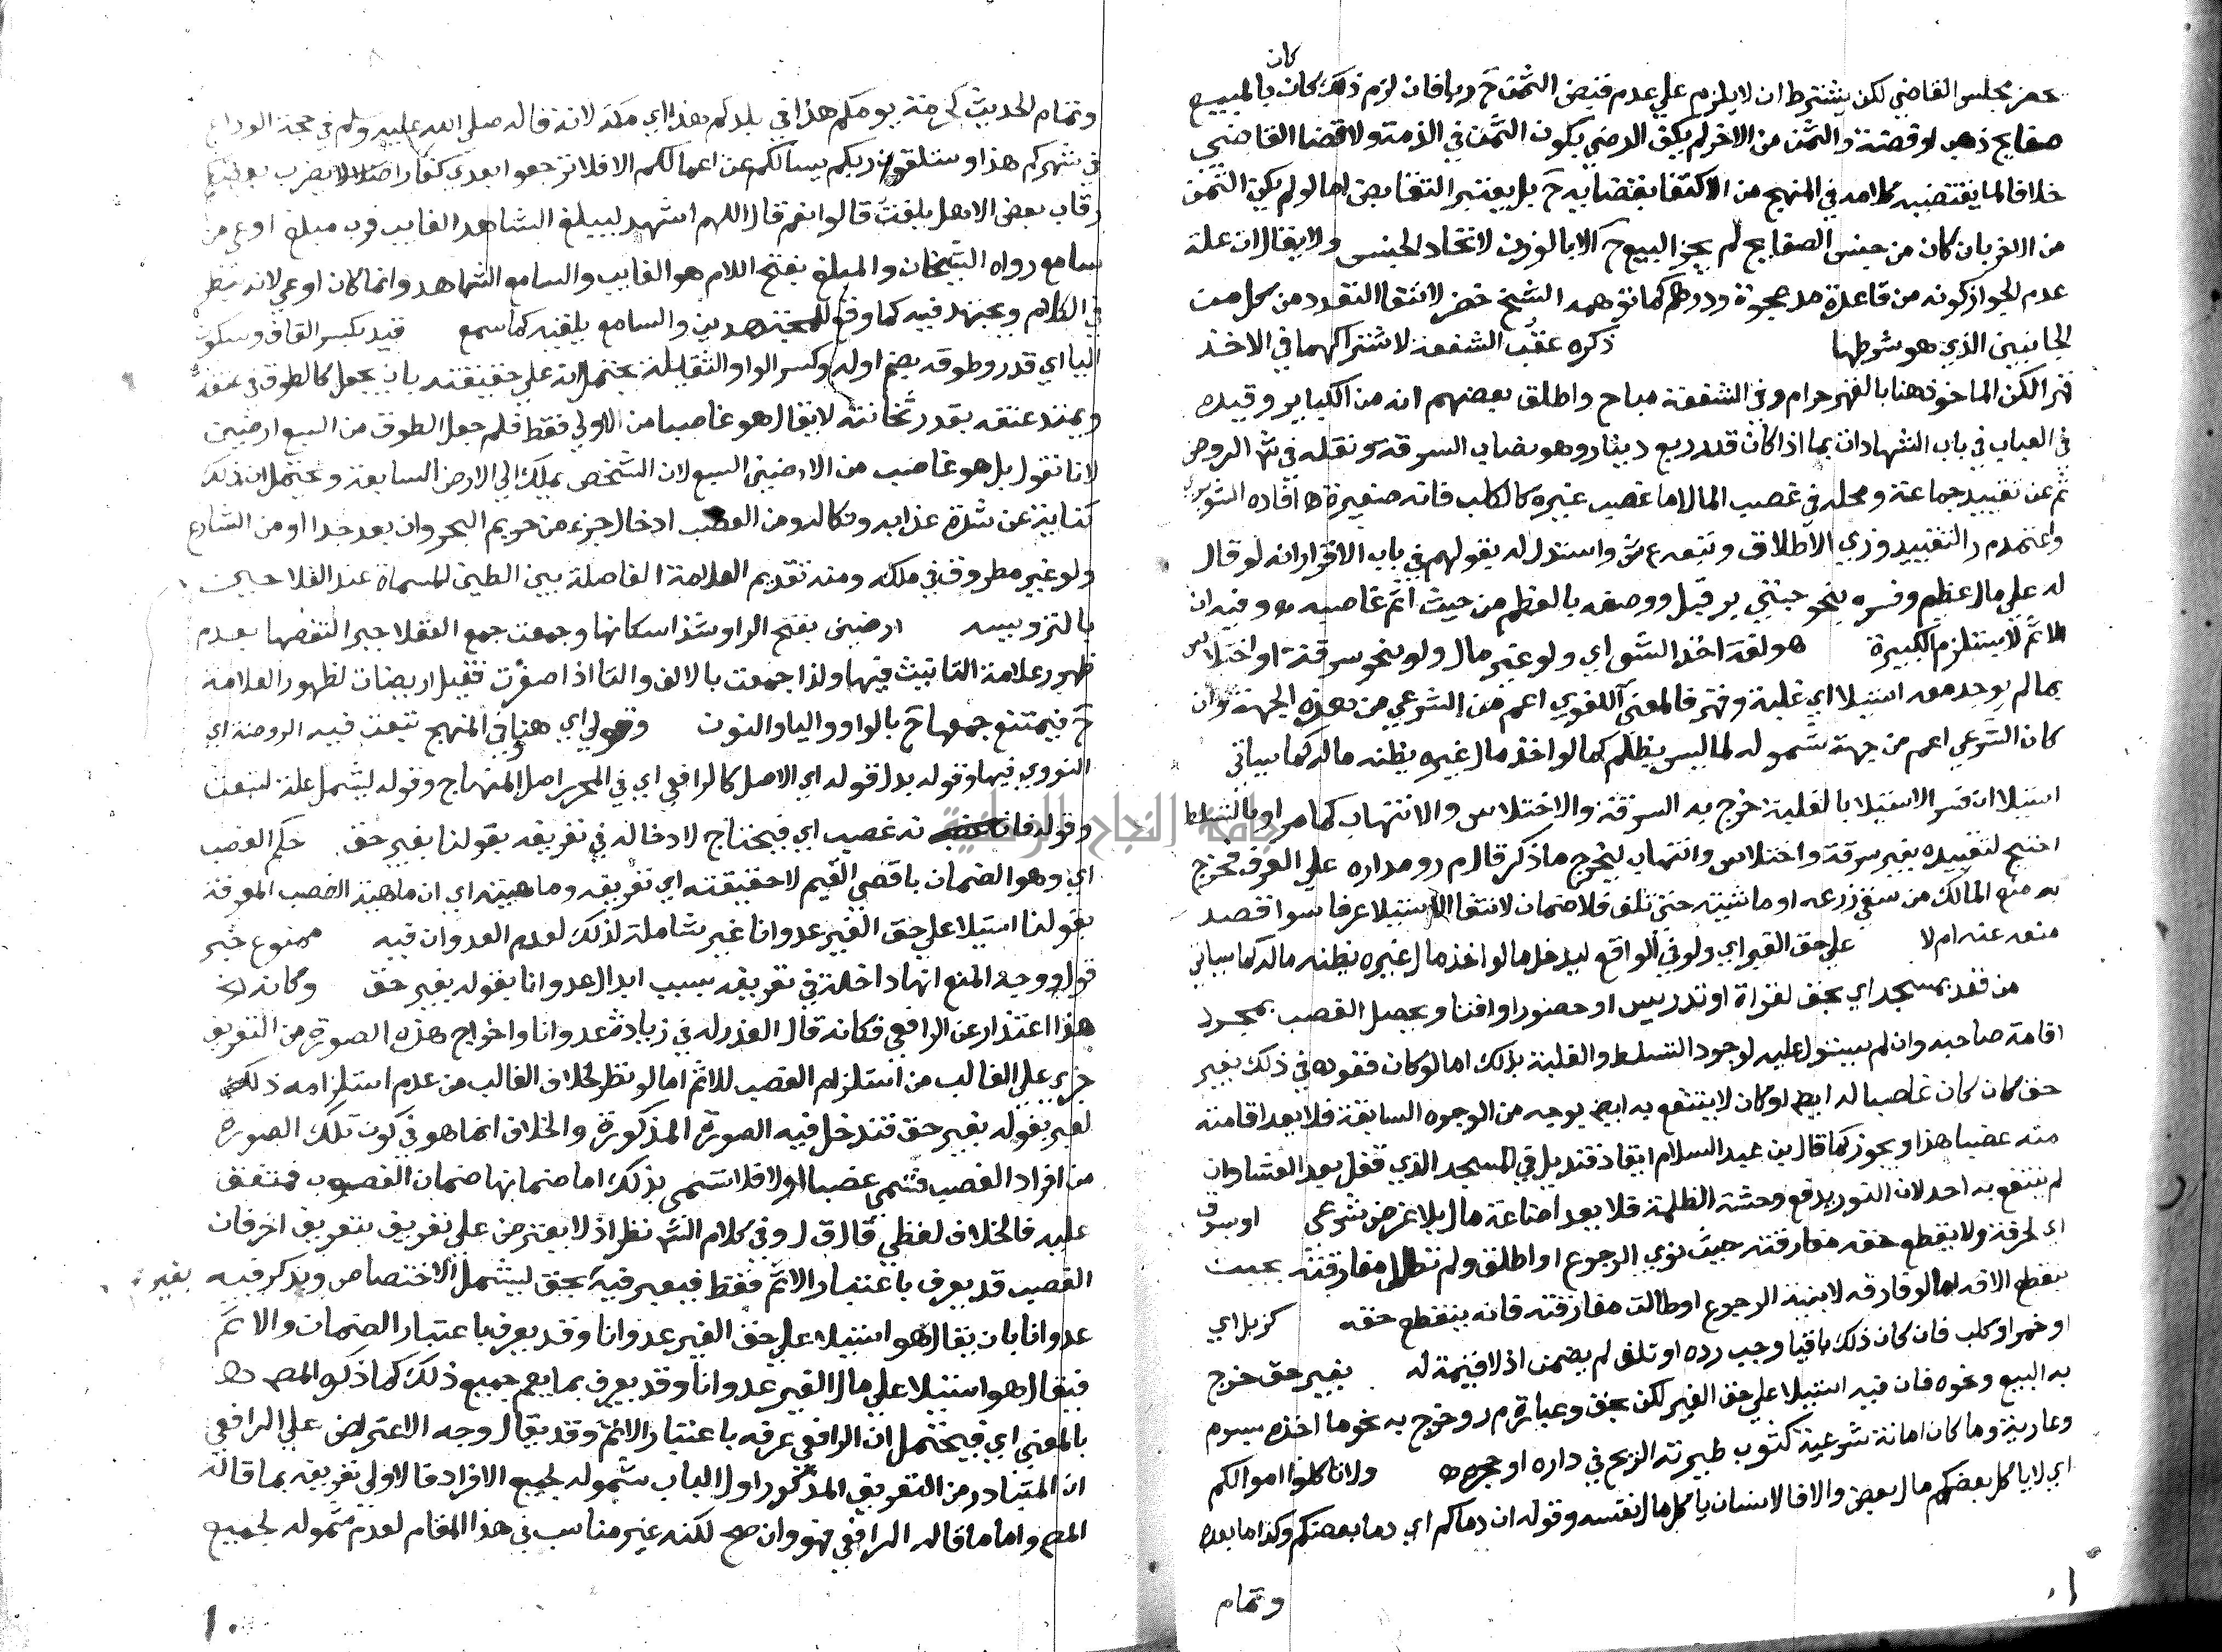 كان
حضر مجلس القاضي لكن يشترط ان لا يلزم علي عدم قبض الثمن ح ربا فان لزم ذلك كان بالمبيع
صفايح ذهب او فضة والثمن من الاخر لم يكف الرضي بكون الثمن في الذمة ولا قضا القاضي
خلافا لما يقتضيه كلامه في المنهج من الاكتفا بقضايه ح بل يعتبر التقابض اما لو لم يكن الثمن
من الاخر بان كان من جنس الصفايح لم يجز البيع ح الا بالوزن لاتحاد الجنس ولا يقال ان علة
عدم الجواز كونه من قاعدة مد عجوة ودرهم كما توهمه الشيخ خضر لانتفا التعدد من كل من
الجانبين الذي هو شرطها ذكره عقب الشفعة لاشتراكهما في الاخذ
قهرا لكن الماخوذ هنا بالقهر حرام وفي الشفعة مباح واطلق بعضهم انه من الكباير وقيده
في العباب في باب الشهادات بما اذا كان قدر ربع دينار وهو نصاب السرقة ونقله في ش الروض
ثم عن تقييد جماعة ومحله في غصب المال اما غصب غيره كالكلب فانه صغيرة ا ه افاده الشوبري
واعتمد م ر التقييد وزي الاطلاق وتبعه ع ش واستدل له بقولهم في باب الاقرار انه لو قال
له علي مال عظيم وفسره بنحو حبتي بر قبل ووصفه بالعظم من حيث اثم غاصبه ا ه وفيه ان
الاثم لا يستلزم الكبيرة هو لغة اخذ الشي اي ولو غير مال ولو بنحو سرقة او اختلاس
بما لم يوجد معه استيلا اي غلبة وقهر فالمعنى اللغوي اعم من الشرعي من هذه الجهة وان
كان الشرعي اعم من جهة شموله لما ليس بظلم كما لو اخذ مال غيره يظنه ماله كما سياتي
استيلا ان فسر الاستيلا بالغلبة خرج به السرقة والاختلاس والانتهاب كما مر او بالتسلط
احتيج لتقييده بغير سرقة واختلاس وانتهاب ليخرج ما ذكر قال م ر ومداره علي العرف فخرج
به منع المالك من سقي زرعه او ماشيته حتى تلف فلا ضمان لانتفا الاستيلا عرفا سوا قصد
منعه عنه ام لا علي حق الغير اي ولو في الواقع ليدخل ما لو اخذ مال غيره يظنه ماله كما سياتي
من قعد بمسجد اي بحق لقراة او تدريس او حضور او افتا ويحصل الغصب بمجرد
اقامة صاحبه وان لم يستول عليه لوجود التسلط والغلبة بذلك اما لو كان قعوده في ذلك بغير
حق كان كان غاصبا له ايضا لو كان لا ينتفع به ايضا بوجه من الوجوه السابقة فلا يعد اقامته
منه غصبا هذا ويجوز كما قال بن عبد السلام ايقاد قنديل في المسجد الذي قفل بعد العشا وان
لم ينتفع به احد لان النور يدفع وحشة الظلمة فلا يعد اضاعة مال بلا غرض شرعي او سوق
اي لحرفة ولا يقطع حقه مفارقته حيث نوي الرجوع او اطلق ولم تطل مفارقته بحيث
ينقطع الافه اما لو فارقه لا بنية الرجوع او طالت مفارقته فانه ينقطع حقه كزبل اي
او خمر او كلب فان كان ذلك باقيا وجب رده او تلف لم يضمن اذ لا قيمة له بغير حق خرج
به البيع ونحوه فان فيه استيلا علي حق الغير لكن بحق وعبارة م ر وخرج به نحو ما اخذه بسوم
وعارية وما كان امانة شرعية كثوب طيرته الريح في داره او حجره ا ه ولا تاكلوا اموالكم
اي لا ياكل بعضكم مال بعض والا فالانسان ياكل مال نفسه وقوله ان دماكم اي دما بعضكم وكذا ما بعده
وتمام
وتمام الحديث كحرمة يومكم هذا في بلدكم هذا اي مكة لانه قاله صلي الله عليه وسلم في حجة الوداع
في شهركم هذا وستلقون ربكم يسالكم عن اعمالكم الا فلا ترجعوا بعدي كفارا ضلالا يضرب بعضكم
رقاب بعض الا هل بلغت قالوا نعم قال اللهم اشهد ليبلغ الشاهد الغايب فرب مبلغ اوعى من
سامع رواه الشيخان والمبلغ بفتح اللام هو الغايب والسامع الشاهد وانما كان اوعي لانه ينظر
في الكلام ويجتهد فيه كما وقع للمجتهدين والسامع يلقيه كما سمع قيد بكسر القاف وسكون
اليا اي قدر وطوقه بضم اوله وكسر الواو الثقيلة يحتمل انه علي حقيقته بان يجعل كالطوق في عنقه
ويمتد عنقه بقدر ثخانته لا يقال هو غاصبا من الاولي فقط فلم جعل الطوق من السبع ارضين
لانا نقول بل هو غاصب من الارضين السبع لان الشخص يملك الي الارض السابعة ويحتمل ان ذلك
كناية عن شدة عذابه ونكاله ومن الغصب ادخال جزء من حريم البحر وان بعد جدا او من الشارع
ولو غير مطروق في ملكه ومنه تقديم العلامة الفاصلة بين الطين المسماة عند الفلاحين
بالتزوبيه ارضين بفتح الرا وشذ اسكانها وجمعت جمع العقلا جبرا لنقصها بعدم
ظهور علامة التانيث فيها ولذا جمعت بالالف والتا اذا صغرت فقيل اريضات لظهور العلامة
ح فيمتنع جمعها ح بالواو واليا والنون وقولي اي هنا في المنهج تبعت فيه الروضة اي
النووي فيها وقوله بدل قوله اي الاصل كالرافعي اي في المحرر اصل المنهاج وقوله ليشمل علة لتبعت
وقوله فانه غصب اي فيحتاج لادخاله في تعريفه بقولنا بغير حق حكم الغصب
اي وهو الضمان باقصي القيم لا حقيقته اي تعريفه وماهيته اي ان ماهية الغصب المعرفة
بقولنا استيلا علي حق الغير عدوانا غير شاملة لذلك لعدم العدوان فيه ممنوع خبر
قول ووجه المنع انها داخلة في تعريفه بسبب ابدال عدوانا بقوله بغير حق وكانه الخ
هذا اعتذار عن الرافعي فكانه قال العذر له في زيادة عدوانا واخراج هذه الصورة من التعريف
جري علي الغالب من استلزام الغصب للاثم اما لو نظر لخلاف الغالب من عدم استلزامه ذلك
لعبر بقوله بغير حق فتدخل فيه الصورة المذكورة والخلاف انما هو في كون تلك الصورة
من افراد الغصب فتسمي غصبا اولا فلا تسمي بذلك اما ضمانها ضمان الغصوب فمتفق
عليه فالخلاف لفظي قال ق ل وفي كلام الش نظر اذ لا يعترض علي تعريف بتعريف اخر فان
الغصب قد يعرف باعتبار الاثم فقط فيعبر فيه بحق ليشمل الاختصاص ويذكر فيه بغير
عدوانا بان يقال هو استيلاء علي حق الغير عدوانا وقد يعرف باعتبار الضمان والاثم
فيقال هو استيلا علي مال الغير عدوانا وقد يعرف بما يعم جميع ذلك كما ذكره المص ا ه
بالمعني اي فيحتمل ان الرافعي عرفه باعتبار الاثم وقد يقال وجه الاعتراض علي الرافعي
ان المتبادر من التعريف المذكور اول الباب شموله لجميع الافراد فالاولي تعريفه بما قاله
المص واما ما قاله الرافعي فهو وان صح لكنه غير مناسب في هذا المقام لعدم شموله لجميع
جامعة النجاح الوطنية